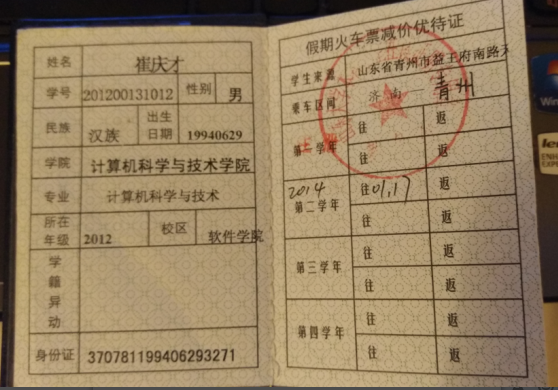 姓名 崔庆才
学号 201200131012 性别 男
民族 汉族 出生日期 19940629
学院 计算机科学与技术学院
专业 计算机科学与技术
所在年级 2012 校区 软件学院
学籍异动
身份证 370781199406293271
假期火车票减价优待证
学生来源 山东省青州市益王府南路
乘车区间 济南 青州
第一学年 往 返
往 返
2014
第二学年 往 01.17 返
往 返
第三学年 往 返
往 返
第四学年 往 返
往 返